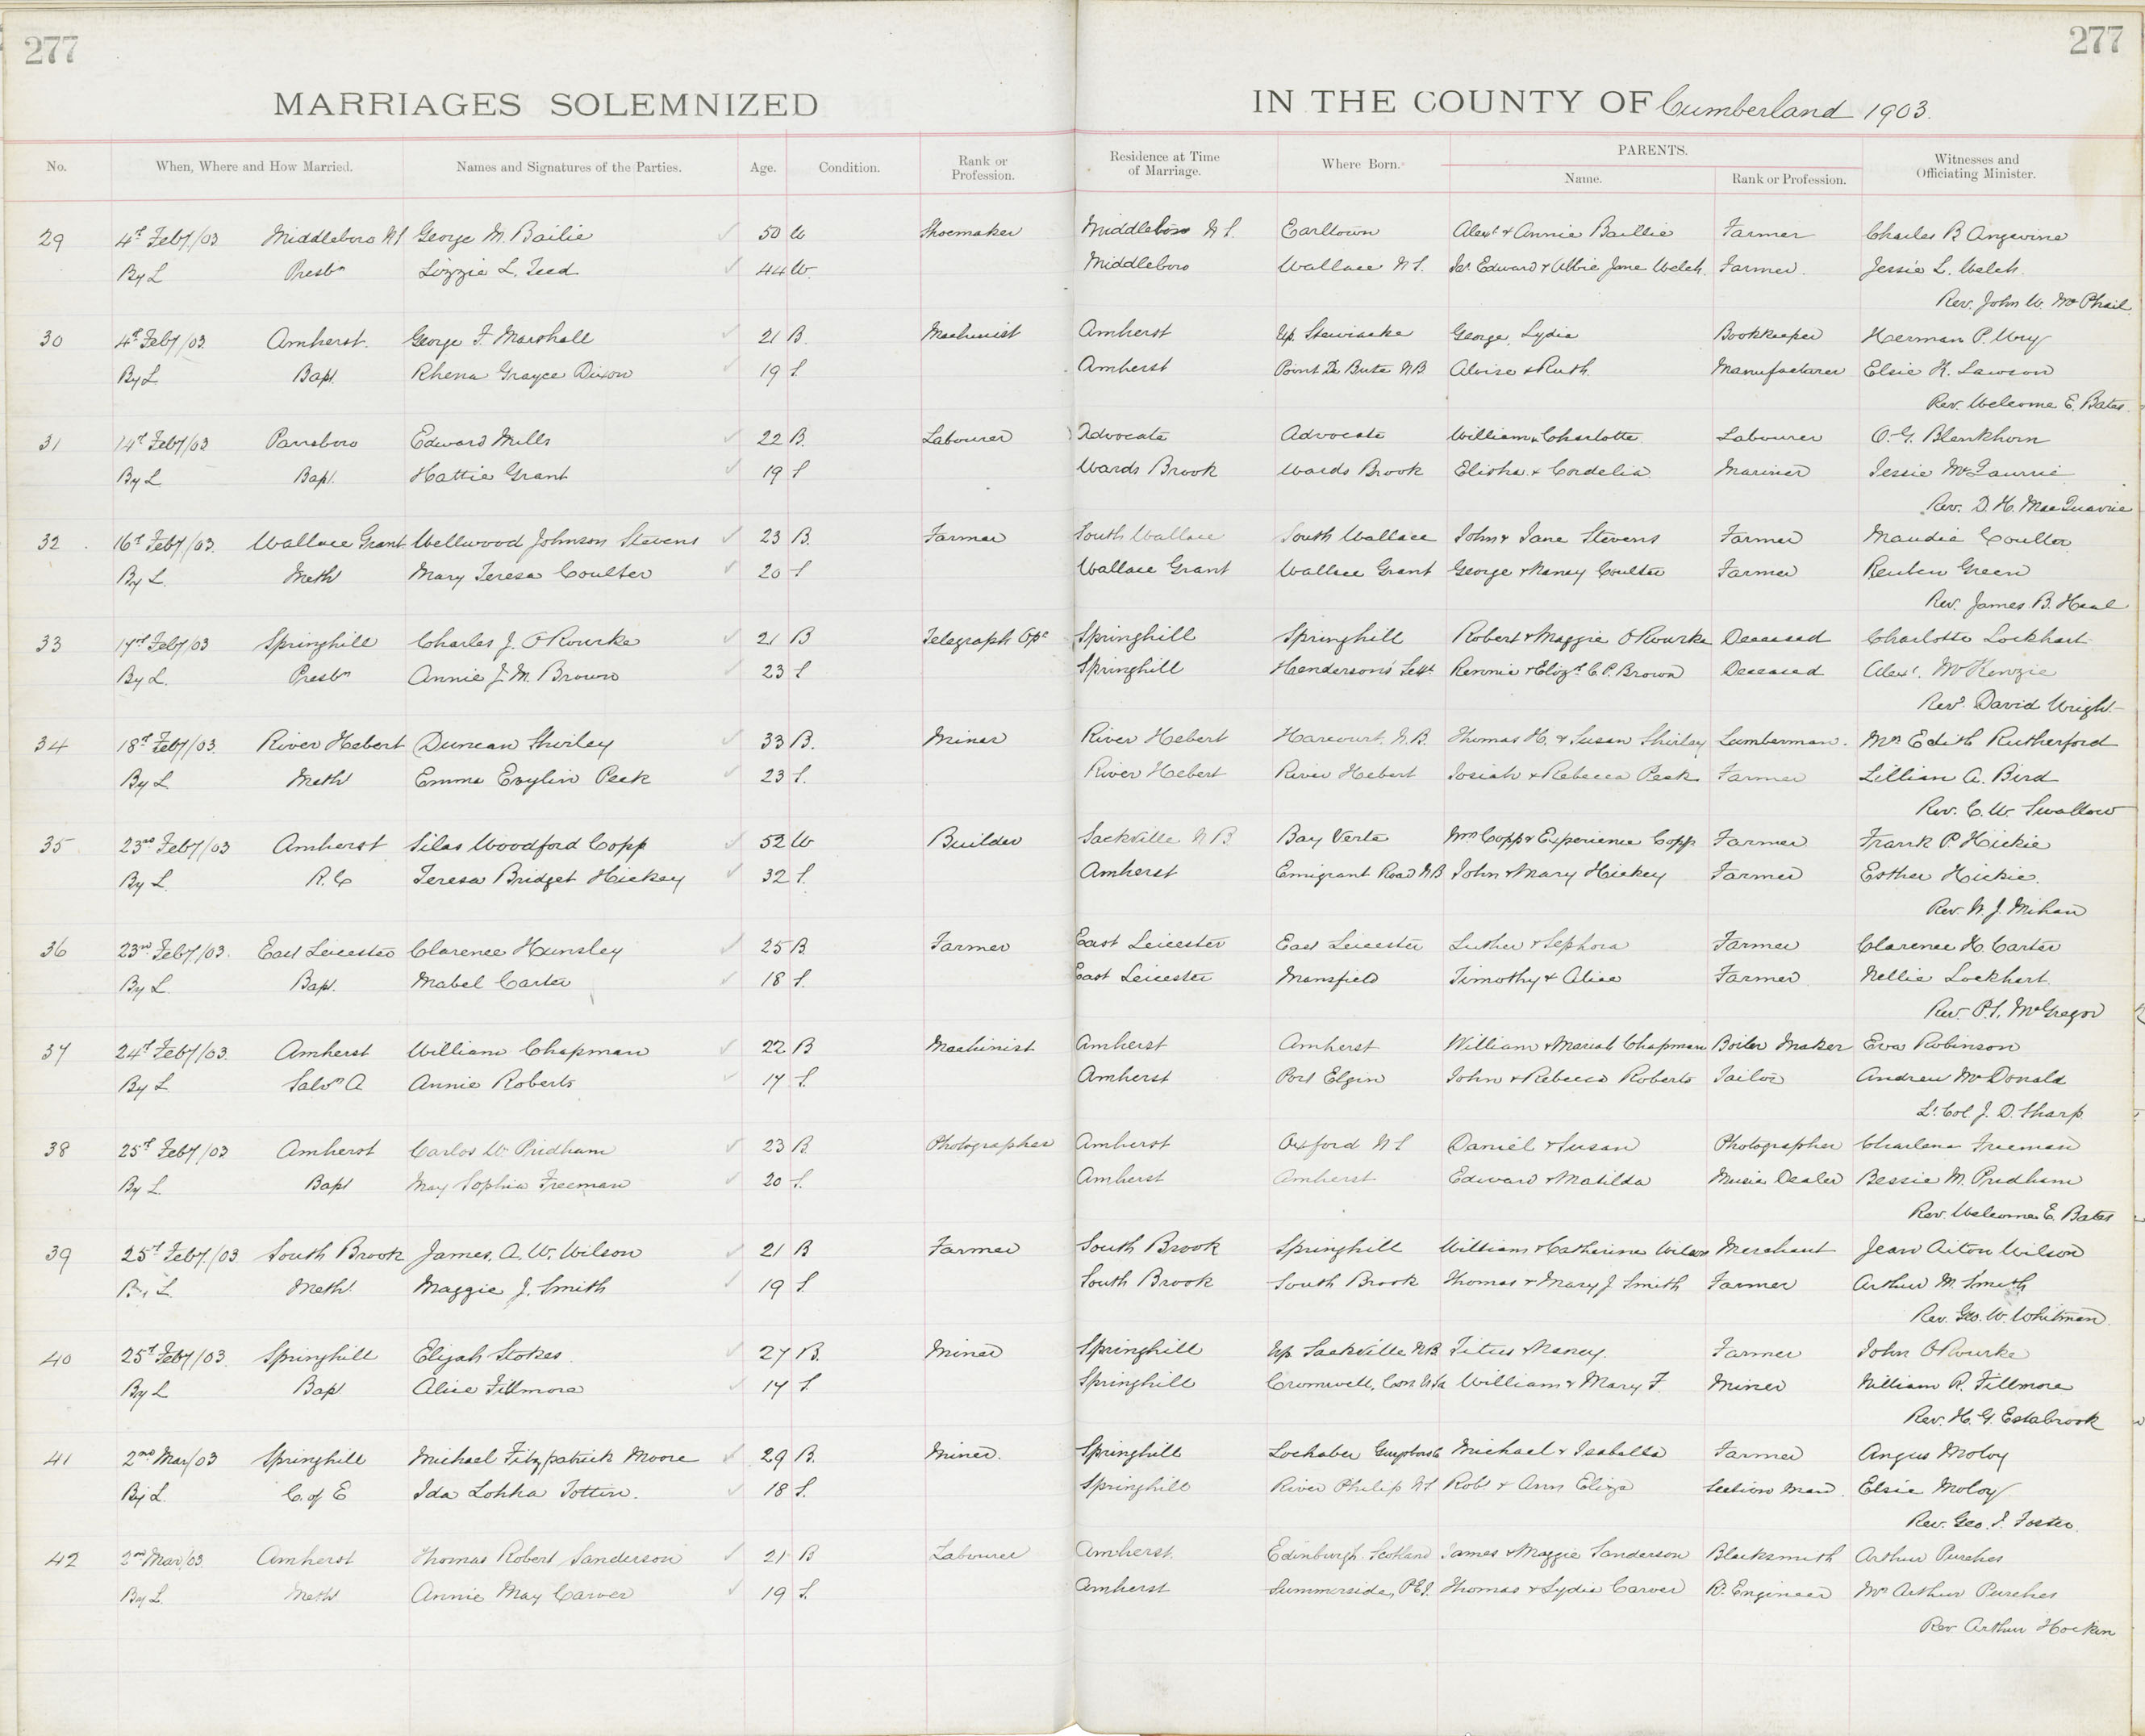 277
277
MARRIAGES SOLEMNIZED
IN THE COUNTY OF Cumberland 1903.
No. When, Where and How Married. Names and Signatures of the Parties. Age. Condition. Rank or Profession. Residence at Time of Marriage. Where Born. PARENTS. Name. Rank or Profession. Witnesses and Officiating Minister.
29 4th Feby/03 Middleboro NS George M. Bailie 50 W Shoemaker Middleboro N S. Earltown Alexr & Annie Baillie Farmer Charles R Angevine
By L Presbn Lizzie L. Teed 44 W. Middleboro Wallace N S. Jas Edward & Abbie Jane Welch Farmer. Jessie L. Welch.
Rev. John W. McPhail
30 4th Feby/03. Amherst. George F. Marshall 21 B. Machinist Amherst Up. Stewiacke George, Lydia Bookkeeper Herman P.
By L Bapt. Rhena Grayce Dixon 19 S. Amherst Point De Bute NB & Ruth. Manufacturer Elsie K. Lawson
Rev. Welcome E. Bates.
31 14th Feby/03 Parrsboro Edward Mills 22 B. Labourer Advocate Advocate William & Charlotte Labourer O. G. Blenkhorn
By L. Bapt. Hattie Grant 19 S Wards Brook Wards Brook Elisha & Cordelia. Mariner Jessie
Rev. D. H. MacQuarrie
32. 16th Feby/03. Wallace Grant Wellwood Johnson Stevens 23 B. Farmer South Wallace South Wallace John & Jane Stevens Farmer Maudie Coulter
By L. Meth Mary Teresa Coulter 20 S Wallace Grant Wallace Grant George & Nancy Coulter Farmer Reuben Green
Rev. James B. Heal
33 17th Feby/03 Springhill Charles J. O'Rourke 21 B Telegraph Opr Springhill Springhill Robert & Maggie O'Rourke Deceased Charlotte Lockhart
By L. Presbn Annie J. M. Brown 23 S Springhill Henderson's Settt. Rennie & Elizth C. P. Brown Deceased Alexr. McKenzie
Revd. David Wright
34 18th Feby/03. River Hebert Duncan Shirley 33 B. Miner River Hebert Harcourt. N.B. Thomas H. & Susan Shirley Lumberman. Mrs Edith Rutherford
By L Meth Emma Evylin Peck 23 S. River Hebert River Hebert Josiah & Rebecca Peck Farmer Lillian A. Bird
Rev. C. W. Swallow
35 23rd Feby/03 Amherst Silas Woodford Copp 52 W Builder Sackville N B. Bay Verte Wm Copp & Experience Copp Farmer Frank P. Hickie
By L. R. C Teresa Bridget Hickey 32 S. Amherst Emigrant Road NB John & Mary Hickey Farmer Esther Hickie.
Rev. W. J. Mihan
36 23rd Feby/03. East Leicester Clarence Hunsley 25 B. Farmer East Leicester East Leicester Luther & Sephora Farmer Clarence H. Carter
By L. Bapt. Mabel Carter 18 S. East Leicester Mansfield Timothy & Alice Farmer Nellie Lockhart
Rev. P. S. McGregor
37 24th Feby/03. Amherst William Chapman 22 B Machinist Amherst Amherst William & Mariah Chapman Boiler Maker Eva Robinson
By L Salvn A Annie Roberts 17 S. Amherst Port Elgin John & Rebecca Roberts Tailor Andrew McDonald
Lt. Col J. D. Sharp
38 25th Feby/03 Amherst Carlos W Pridham 23 B. Photographer Amherst Oxford N S Daniel & Susan Photographer Charlena Freeman
By L. Bapt May Sophia Freeman 20 S. Amherst Amherst Edward & Matilda Music Dealer Bessie M. Pridham
Rev. Welcome E. Bates
39 25th Feby./03 South Brook James. A. W. Wilson 21 B Farmer South Brook Springhill William & Catherine Wilson Merchant Jean Aiton Wilson
By L. Meth. Maggie J. Smith 19 S. South Brook South Brook Thomas & Mary J Smith Farmer Arthur M. Smith
Rev. Geo. W. Whitman.
40 25th Feby/03. Springhill Elijah Stokes. 27 B. Miner Springhill Up. Sackville NB. Titus & Nancy. Farmer John O'Rourke
By L Bapt Alice Fillmore 17 S. Springhill Cromwell, Conn USA William & Mary F. Miner William R. Fillmore
Rev. H. G. Estabrook
41 2nd Mar/03 Springhill Michael Fitzpatrick Moore 29 B. Miner. Springhill Lochaber Guysboro Co Michael & Isabella Farmer Angus Moloy
By L. C. of E Ida Lohka Totten. 18 S. Springhill River Philip N S Robt & Ann Eliza Section Man Elsie Moloy
Rev. Geo. I. Foster.
42 2nd Mar/03. Amherst Thomas Robert Sanderson 21 B Labourer Amherst. Edinburgh Scotland James & Maggie Sanderson Blacksmith Arthur Purches
By L. Meth Annie May Carver 19 S. Amherst Summerside, P.E.I. Thomas & Lydia Carver R. Engineer Mrs Arthur Purches
Rev Arthur Hockin